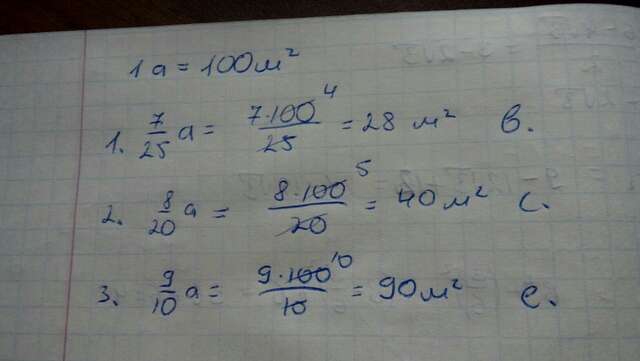 1 a = 100 м²
1. 7/25 a = 7·100 4/25 = 28 м² в.
2. 8/20 a = 8·100 5/20 = 40 м² с.
3. 9/10 a = 9·100 10/10 = 90 м² е.